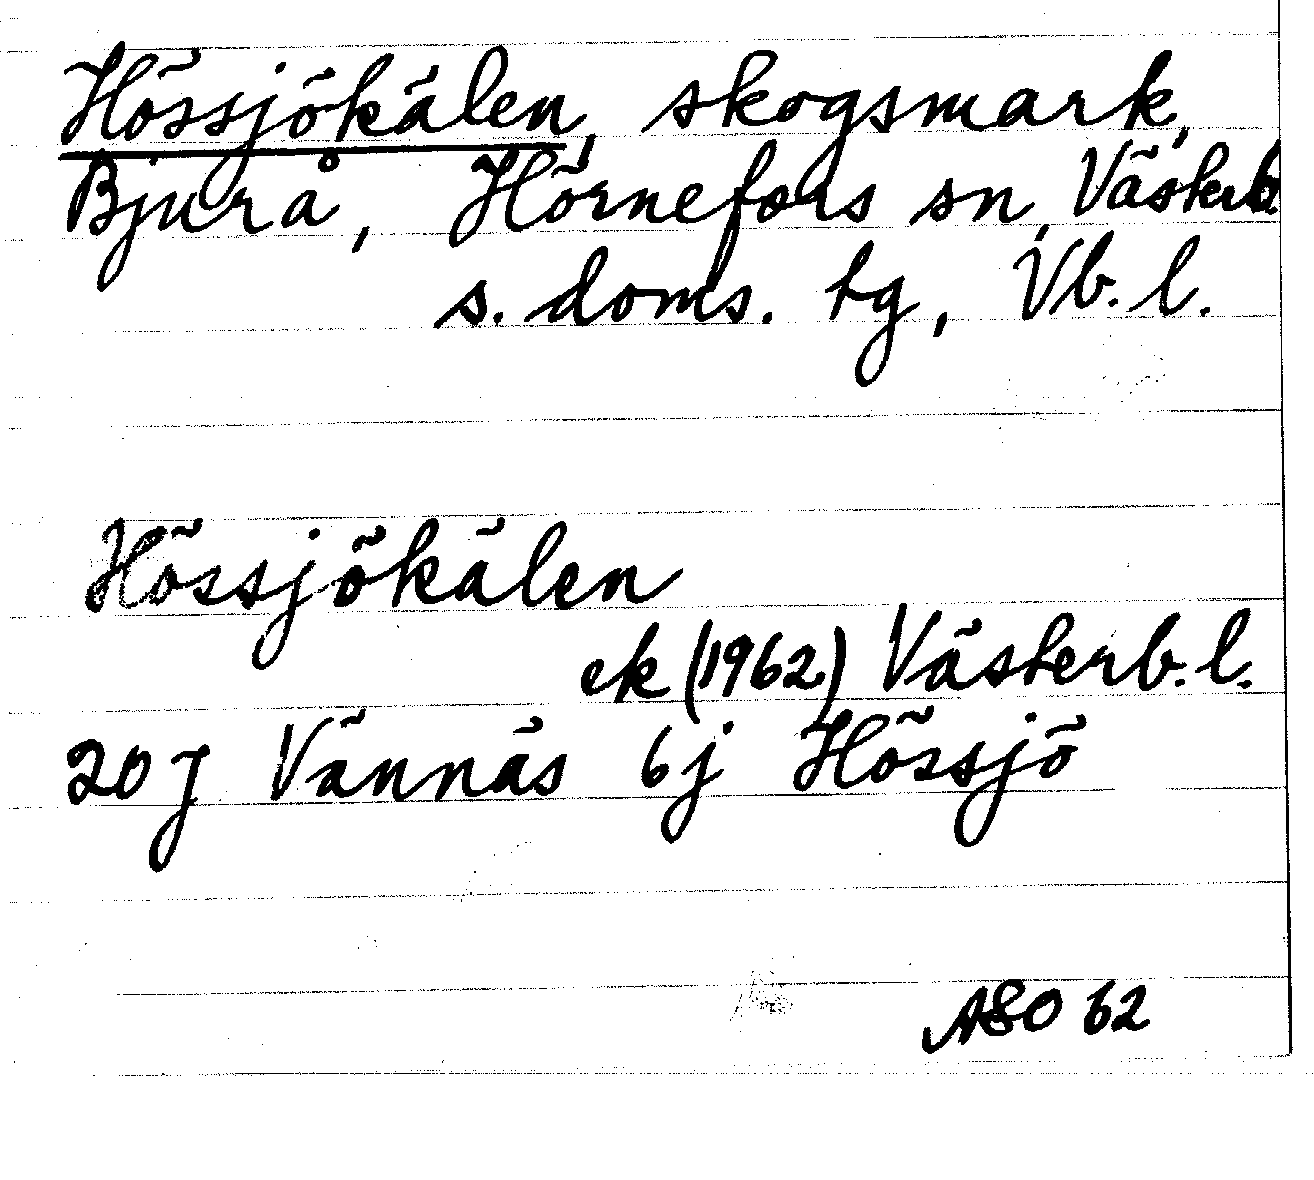 Hössjökälen, skogsmark,
Bjurå, Hörnefors sn, Västerb.
s. doms. tg, Vb. l.
Hössjökälen
ek (1962) Västerb. l.
20J Vännäs 6j Hössjö
ASO 62